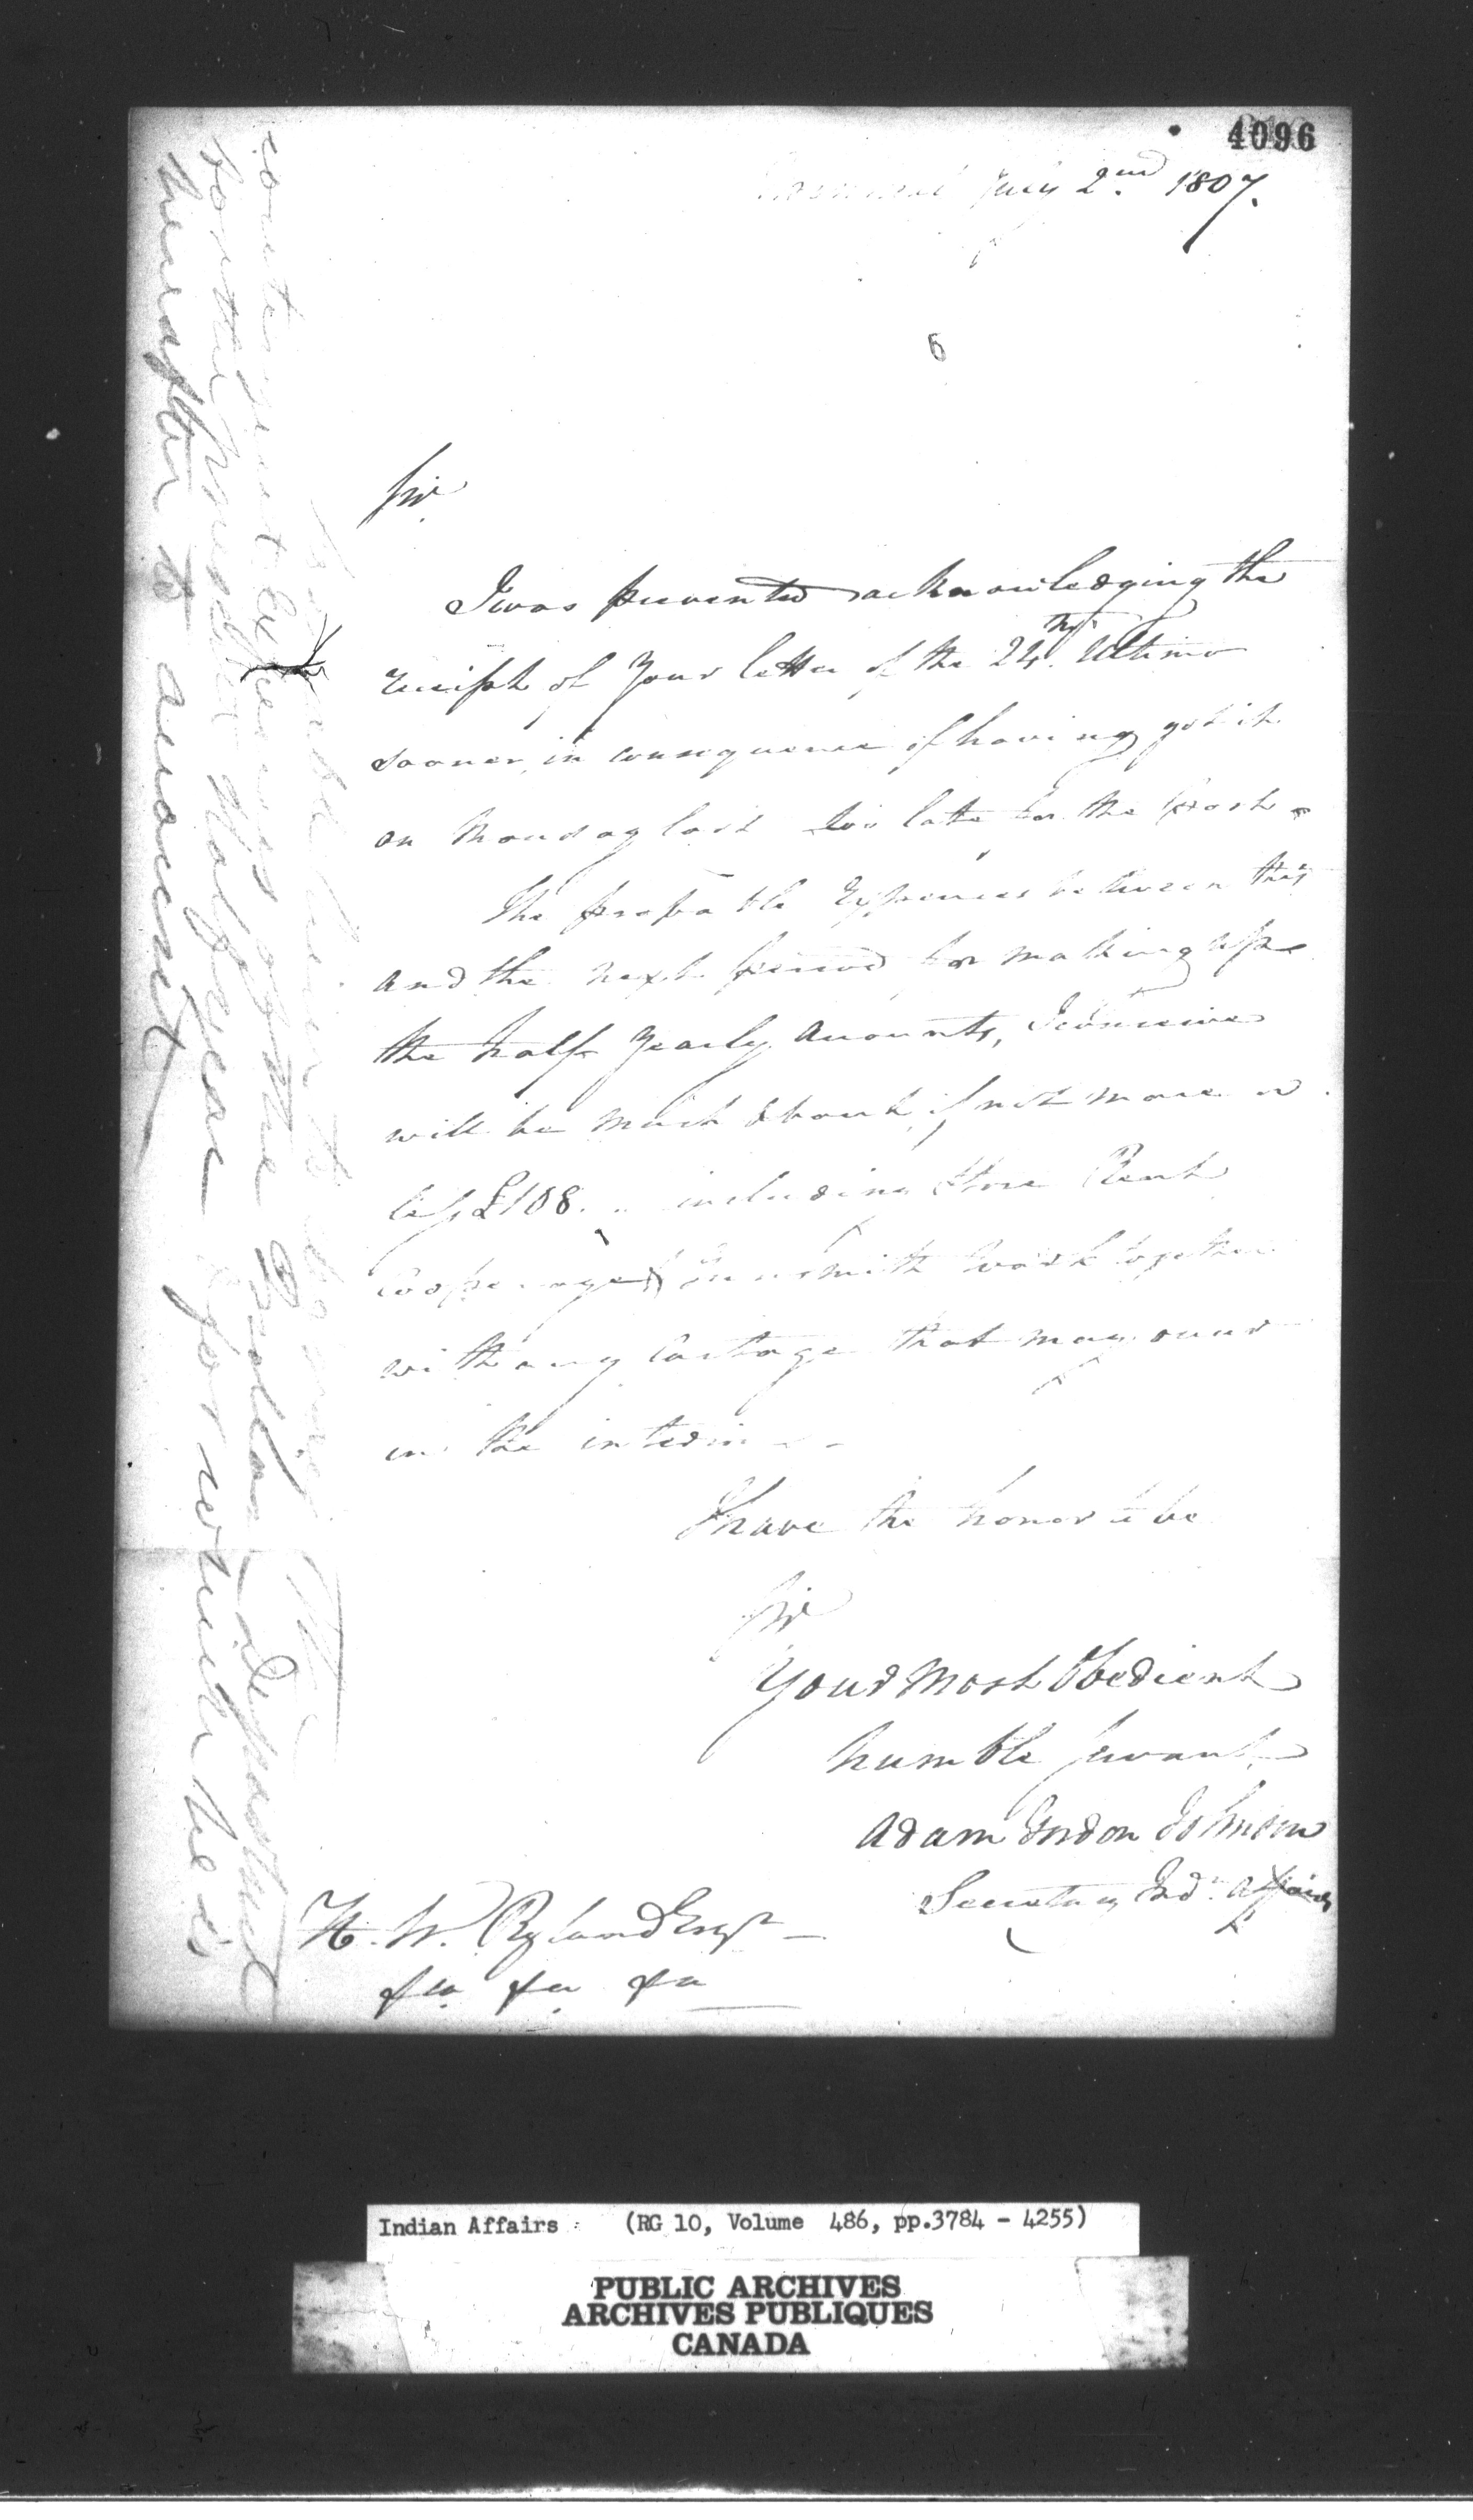 4096
July 2nd. 1807.
6
Sir
I was prevented acknowledging the
receipt of Your letter of the 24th. Ultimo
sooner, in consequence of having got it
on Monday last too late for the Post -
The probable Expences between this
and the next period for making up
the half Yearly Accounts, I conceive
will be much about, if not more or
less £108 .. including Store Rent
Cooperage & Gunsmith Work together
with any Cartage that may occur
in the interim - -
I have the honor to be
Sir
Your Most Obedient
humble Servant
Adam Gordon Johnson
Secretary Ind. Affairs
H. W. Ryland Esqr
&ca &ca &ca
to some
The
contingent Expences of the Indian Department
for the present Half year for will be is
hereafter to account
Indian Affairs (RG 10, Volume 486, pp.3784 - 4255)
PUBLIC ARCHIVES
ARCHIVES PUBLIQUES
CANADA